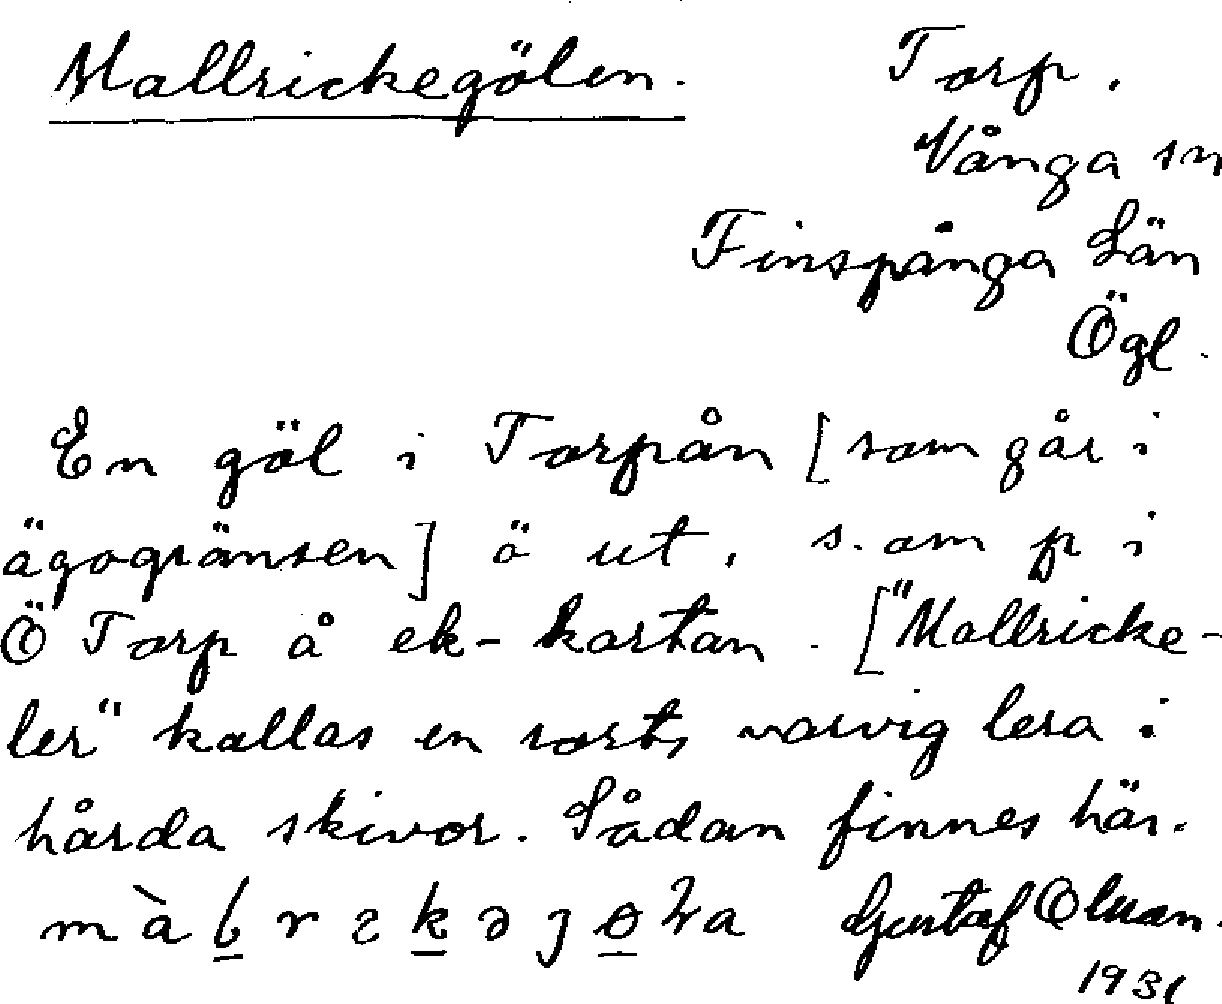 Mallrickegölen.
Torp.
Vånga sn
Finspånga Län
Ögl.
En göl i Torpån [som går i
ägogränsen] ö ut, s. om p i
Ö Torp å ek-kartan. ["Mallricke-
ler" kallas en sorts varvig lera i
hårda skivor. Sådan finnes här.
Gustaf Olson.
1931